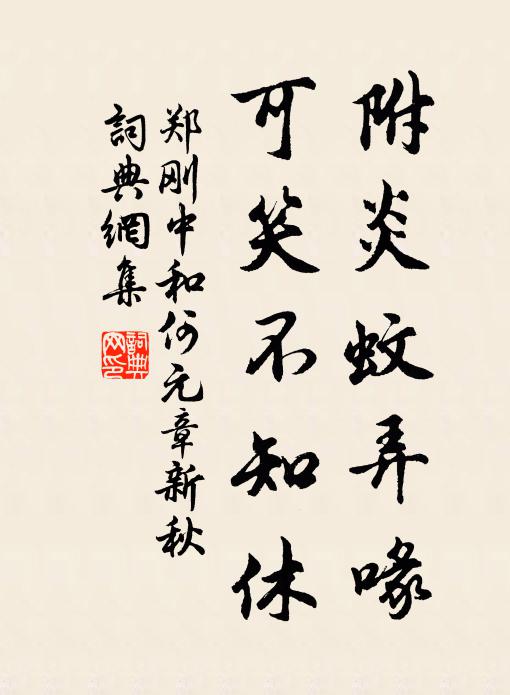 附炎蚊弄喙
可笑不知休
郑刚中和何元章新秋
詞典網集
詞典网印